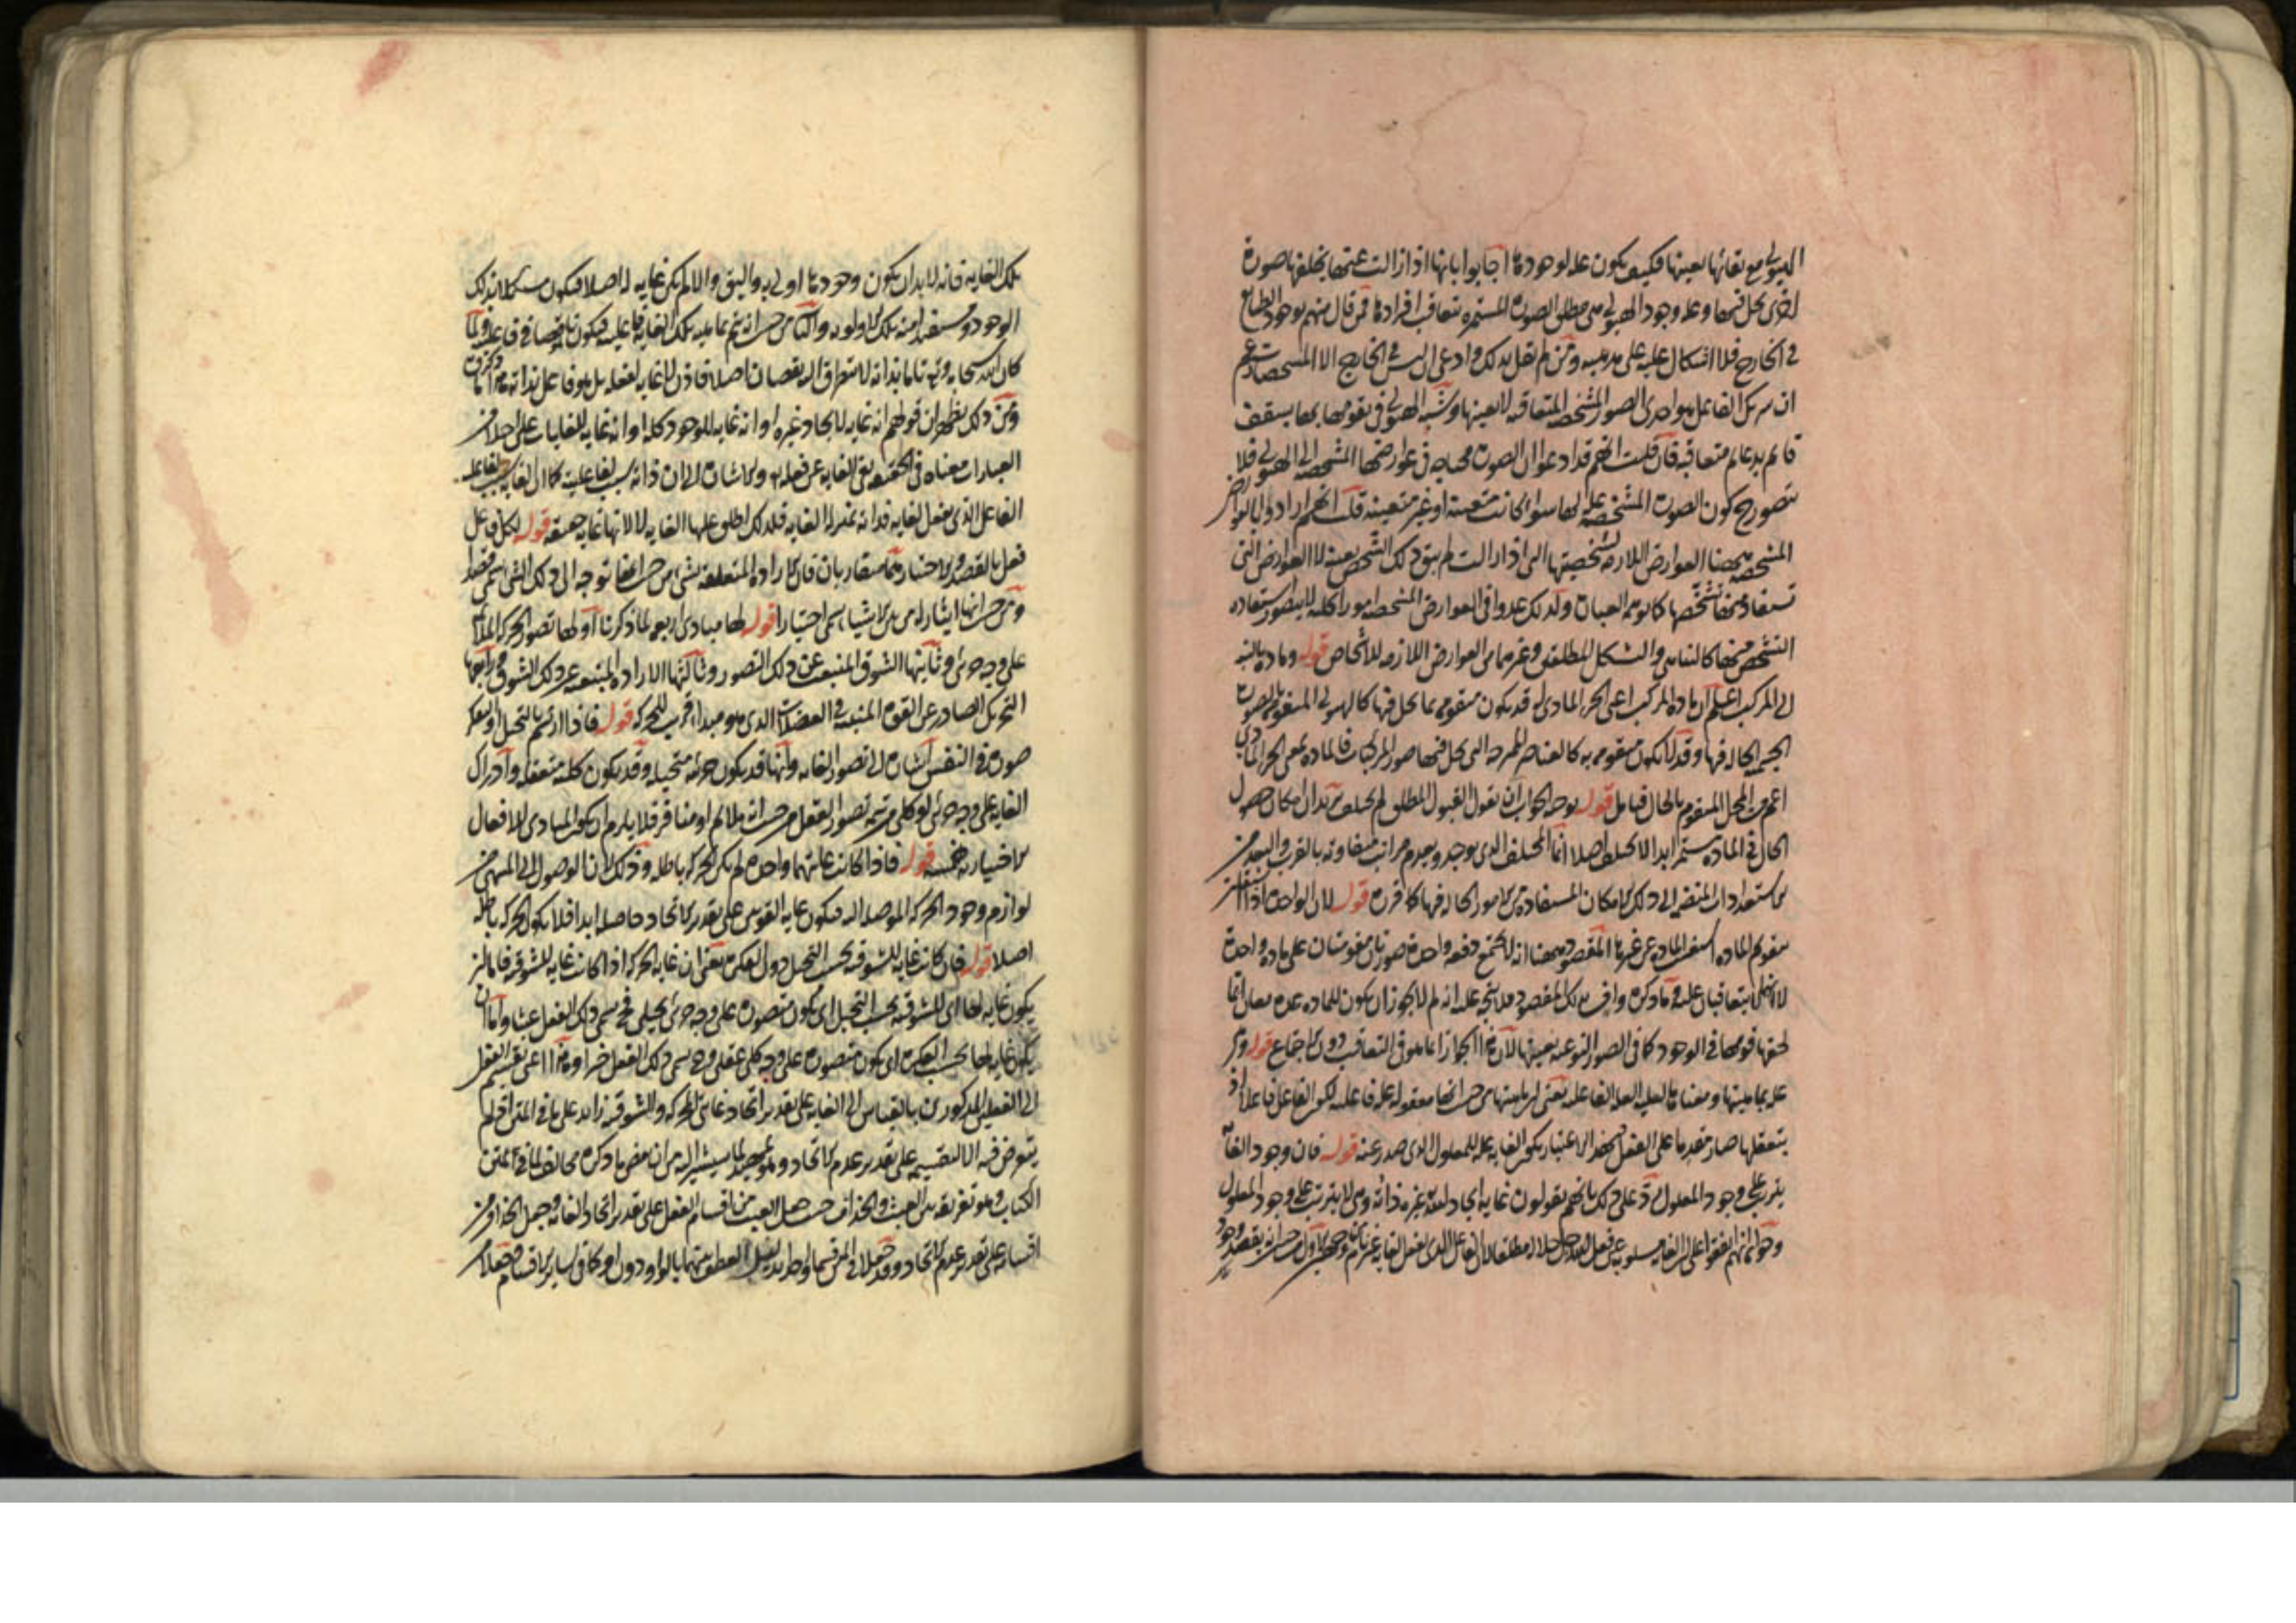 الهيولى مع بقائها بعينها فكيف يكون علة لوجودها اجابوا بانها اذا زالت عنها يخلفها صورة
اخرى يحل فيها وعلة وجود الهيولى هى مطلق الصورة المستمرة بتعاقب افرادها فمن قال منهم بوجود الطبايع
فى الخارج فلا اشكال عليه على مذهبه ومن لم يقل بذلك وادعى ان ليس فى الخارج الا المشخصات زعم
ان شريك الفاعل هو احدى الصور المشخصة المتعاقبة لا بعينها وشبه الهيولى فى تقومها بها بسقف
قايم بدعايم متعاقبة فان قلت انهم قد ادعوا ان الصورة محتاجة فى عوارضها المشخصة الى الهيولى فلا
يتصور ح كون الصورة المشخصة علة لها سواء كانت متعينة او غير متعينة قلت انهم ارادوا بالعوارض
المشخصة ههنا العوارض اللازمة لشخصيتها التى اذا زالت لم يبق ذلك الشخص بعينه لا العوارض التى
تستفاد منها تشخصها كما توهمه العبارة ولذلك عدوا فى العوارض المشخصة امورا كلية لا يتصور استفادة
التشخص منها كالتناهى والشكل المطلقين وغيرهما من العوارض اللازمة للاشخاص قوله ومادة بالنسبة
الى المركب اعلم ان مادة المركب اعنى الجزء المادى له قد يكون متقومة بما يحل فيها كالهيولى المتقومة بالصورة
الجسمية الحالة فيها وقد لا يكون متقومة به كالعناصر الممتزجة التى يحل فيها صور المركبات فالمادة بمعنى الجزء المادى
اعم من المحل المتقوم بالحال فتامل قوله توجيه الجواب ان نقول القبول المطلق لم يختلف ابدا لان امكان حصول
الحال فى المادة مستمر ابدا لا يختلف اصلا انما المختلف الذى يوجد ويعدم مراتب متفاوتة بالقرب والبعد من
الاستعدادات المنضمة الى ذلك الامكان المستفادة من الامور الحالة فيها كما قرره قوله لان الواحدة اذا
تقوم المادة استغنت المادة عن غيرها المقصود ههنا انه لا يجتمع دفعة واحدة صورتان مقومتان على مادة واحدة
لا انهما لا يتعاقبان عليه وما ذكره واف بذلك المقصود فلا يتجه عليه انه لم لا يجوز ان يكون للمادة عدة
لحقها قومها فى الوجود كما فى الصور النوعية بعينها لان هذا الجواز انما هو فى التعاقب دون الاجتماع قوله وهى
علة بماهيتها ومعناها لعلية العلة الفاعلية يعنى ان ماهيتها من حيث انها معقولة علة فاعلية لكون الفاعل فاعلا اذ
بتعقلها صار مقدما على الفعل فبهذا الاعتبار يكون الغاية علة للمعلول الذى صدر عنه قوله فان وجود الغاية
يترتب على وجود المعلول رد على ذلك بانهم يقولون غاية ايجاد الله غيره ذاته وهى لا يترتب على وجود المعلول
وجوابه انهم اتفقوا على ان الغاية مسلوبة عن فعل الله جل جلاله مطلقا لان الفاعل الذى يفعل لغاية غير تام من وجهين الاول من حيث انه يقصد وجود
تلك الغاية فانه لا بد ان يكون وجودها اولى به واليق والا لم يكن غاية له اصلا فيكون مستكملا بذلك
الوجود ومستفيدا منه تلك الاولوية والثانى من حيث انه يتم بماهية تلك الغاية فاعليته فيكون ناقصا فى فاعليته ولما
كان الله سبحانه وتعالى تاما بذاته لا يتطرق اليه نقصان اصلا فاذن لا غاية لفعله بل هو فاعل بذاته
ومن ذلك يظهر ان قولهم انه غاية لايجاد غيره او انه غاية للوجود كله او انه غاية للغايات على اختلاف
العبارات معناه فى الحقيقة نفى الغاية عن فعله والاشارة الى ان ذاته سبب لفاعليته كما ان الغاية سبب لفاعلية
الفاعل الذى يفعل لغاية فذاته بمنزلة الغاية فلذلك اطلق عليها الغاية لا لانها غاية حقيقة قوله لكل فاعل
فعل بالقصد والاختيار هما متقاربان فان الارادة المتعلقة بشىء من حيث انها توجه الى ذلك الشىء تسمى قصدا
ومن حيث انها ايثار له من بين الاشياء يسمى اختيارا قوله لها مبادى اربعة لما ذكرنا اولها تصور الحركة الملايمة
على وجه جزئى وثانيتها الشوق المنبعث عن ذلك التصور وثالثها الارادة المنبعثة عن ذلك الشوق ورابعها
التحريك الصادر عن القوة المنبثة فى العضلات الذى هو مبدأ قريب للحركة قوله فاذا ارتسم بالتخيل او بالتفكر
صورة فى النفس اشارة الى تصور الغاية وانها قد يكون جزئية متخيلة وقد يكون كلية متعقلة وادراك
الغاية على وجه جزئى او كلى هو تتمة تصور الفعل من حيث انه ملايم او منافر فلا يلزم ان يكون المبادى للافعال
الاختيارية خمسة قوله فاذا كانت غايتهما واحدة لم يكن الحركة باطلة وذلك لان الوصول الى المنتهى من
لوازم وجود الحركة الموصلة اليه فيكون غاية القوتين على تقدير الاتحاد حاصلة ابدا فلا يكون الحركة باطلة
اصلا قوله فان كانت غاية للشوقية بحسب التخيل دون الفكر يعنى ان غاية الحركة اذا كانت غاية للشوقية فاما ان
يكون غاية لها اى للشوقية بحسب التخيل اى يكون متصورة على وجه جزئى تخيلى فح يسمى ذلك الفعل عبثا واما ان
يكون غاية لها بحسب الفكر اى يكون متصورة على وجه كلى عقلى وح يسمى ذلك الفعل خيرا وهذا اعنى تقسيم الفعل
الى القسمين المذكورين بالقياس الى الغاية على تقدير اتحاد غايتى الحركة والشوقية زايد على ما فى المتن اذ لم
يتعرض فيه الا لتقسيمه على تقدير عدم الاتحاد وهو تمهيد لما سيشير اليه من ان بعض ما ذكره مخالف لما فى متن
الكتاب وهو تفريقه بين العبث والجزاف حيث جعل العبث من اقسام الفعل على تقدير اتحاد الغاية وجعل الجزاف من
اقسامه على تقدير عدم الاتحاد وقد جعلا فى المتن قسما واحدا بدليل العطف بينهما بالواو دون او كما فى ساير الاقسام